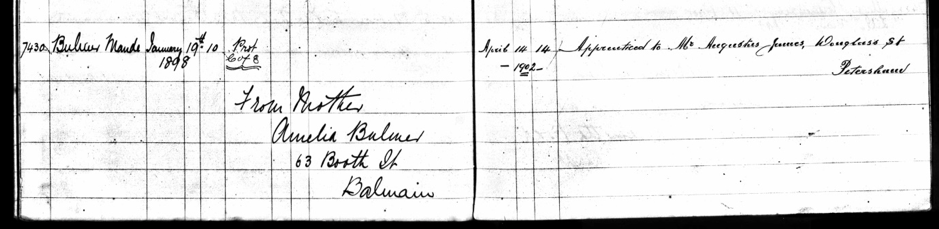 7430 Bulmer Maude January 19th 10 Prot
1898 C of E
From Mother
Amelia Bulmer
63 Booth St
Balmain
April 14 14 Apprenticed to Mr Augustus James, Douglass St
- 1902 - Petersham